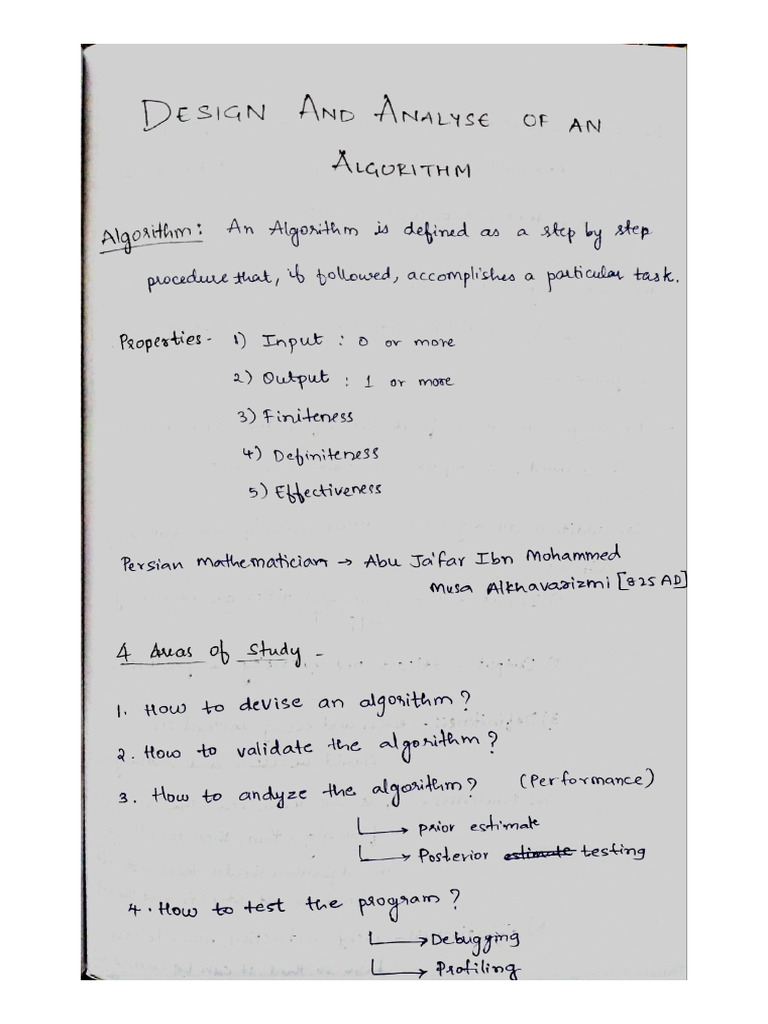 DESIGN AND ANALYSE OF AN
ALGORITHM
Algorithm: An Algorithm is defined as a step by step
procedure that, if followed, accomplishes a particular task.
Properties - 1) Input : 0 or more
2) Output : 1 or more
3) Finiteness
4) Definiteness
5) Effectiveness
Persian mathematician → Abu Ja'far Ibn Mohammed
Musa Alkhavarizmi [825 AD]
4 Areas of Study -
1. How to devise an algorithm?
2. How to validate the algorithm?
3. How to analyze the algorithm? (Performance)
→ prior estimate
→ Posterior estimate testing
4. How to test the program?
→ Debugging
→ Profiling